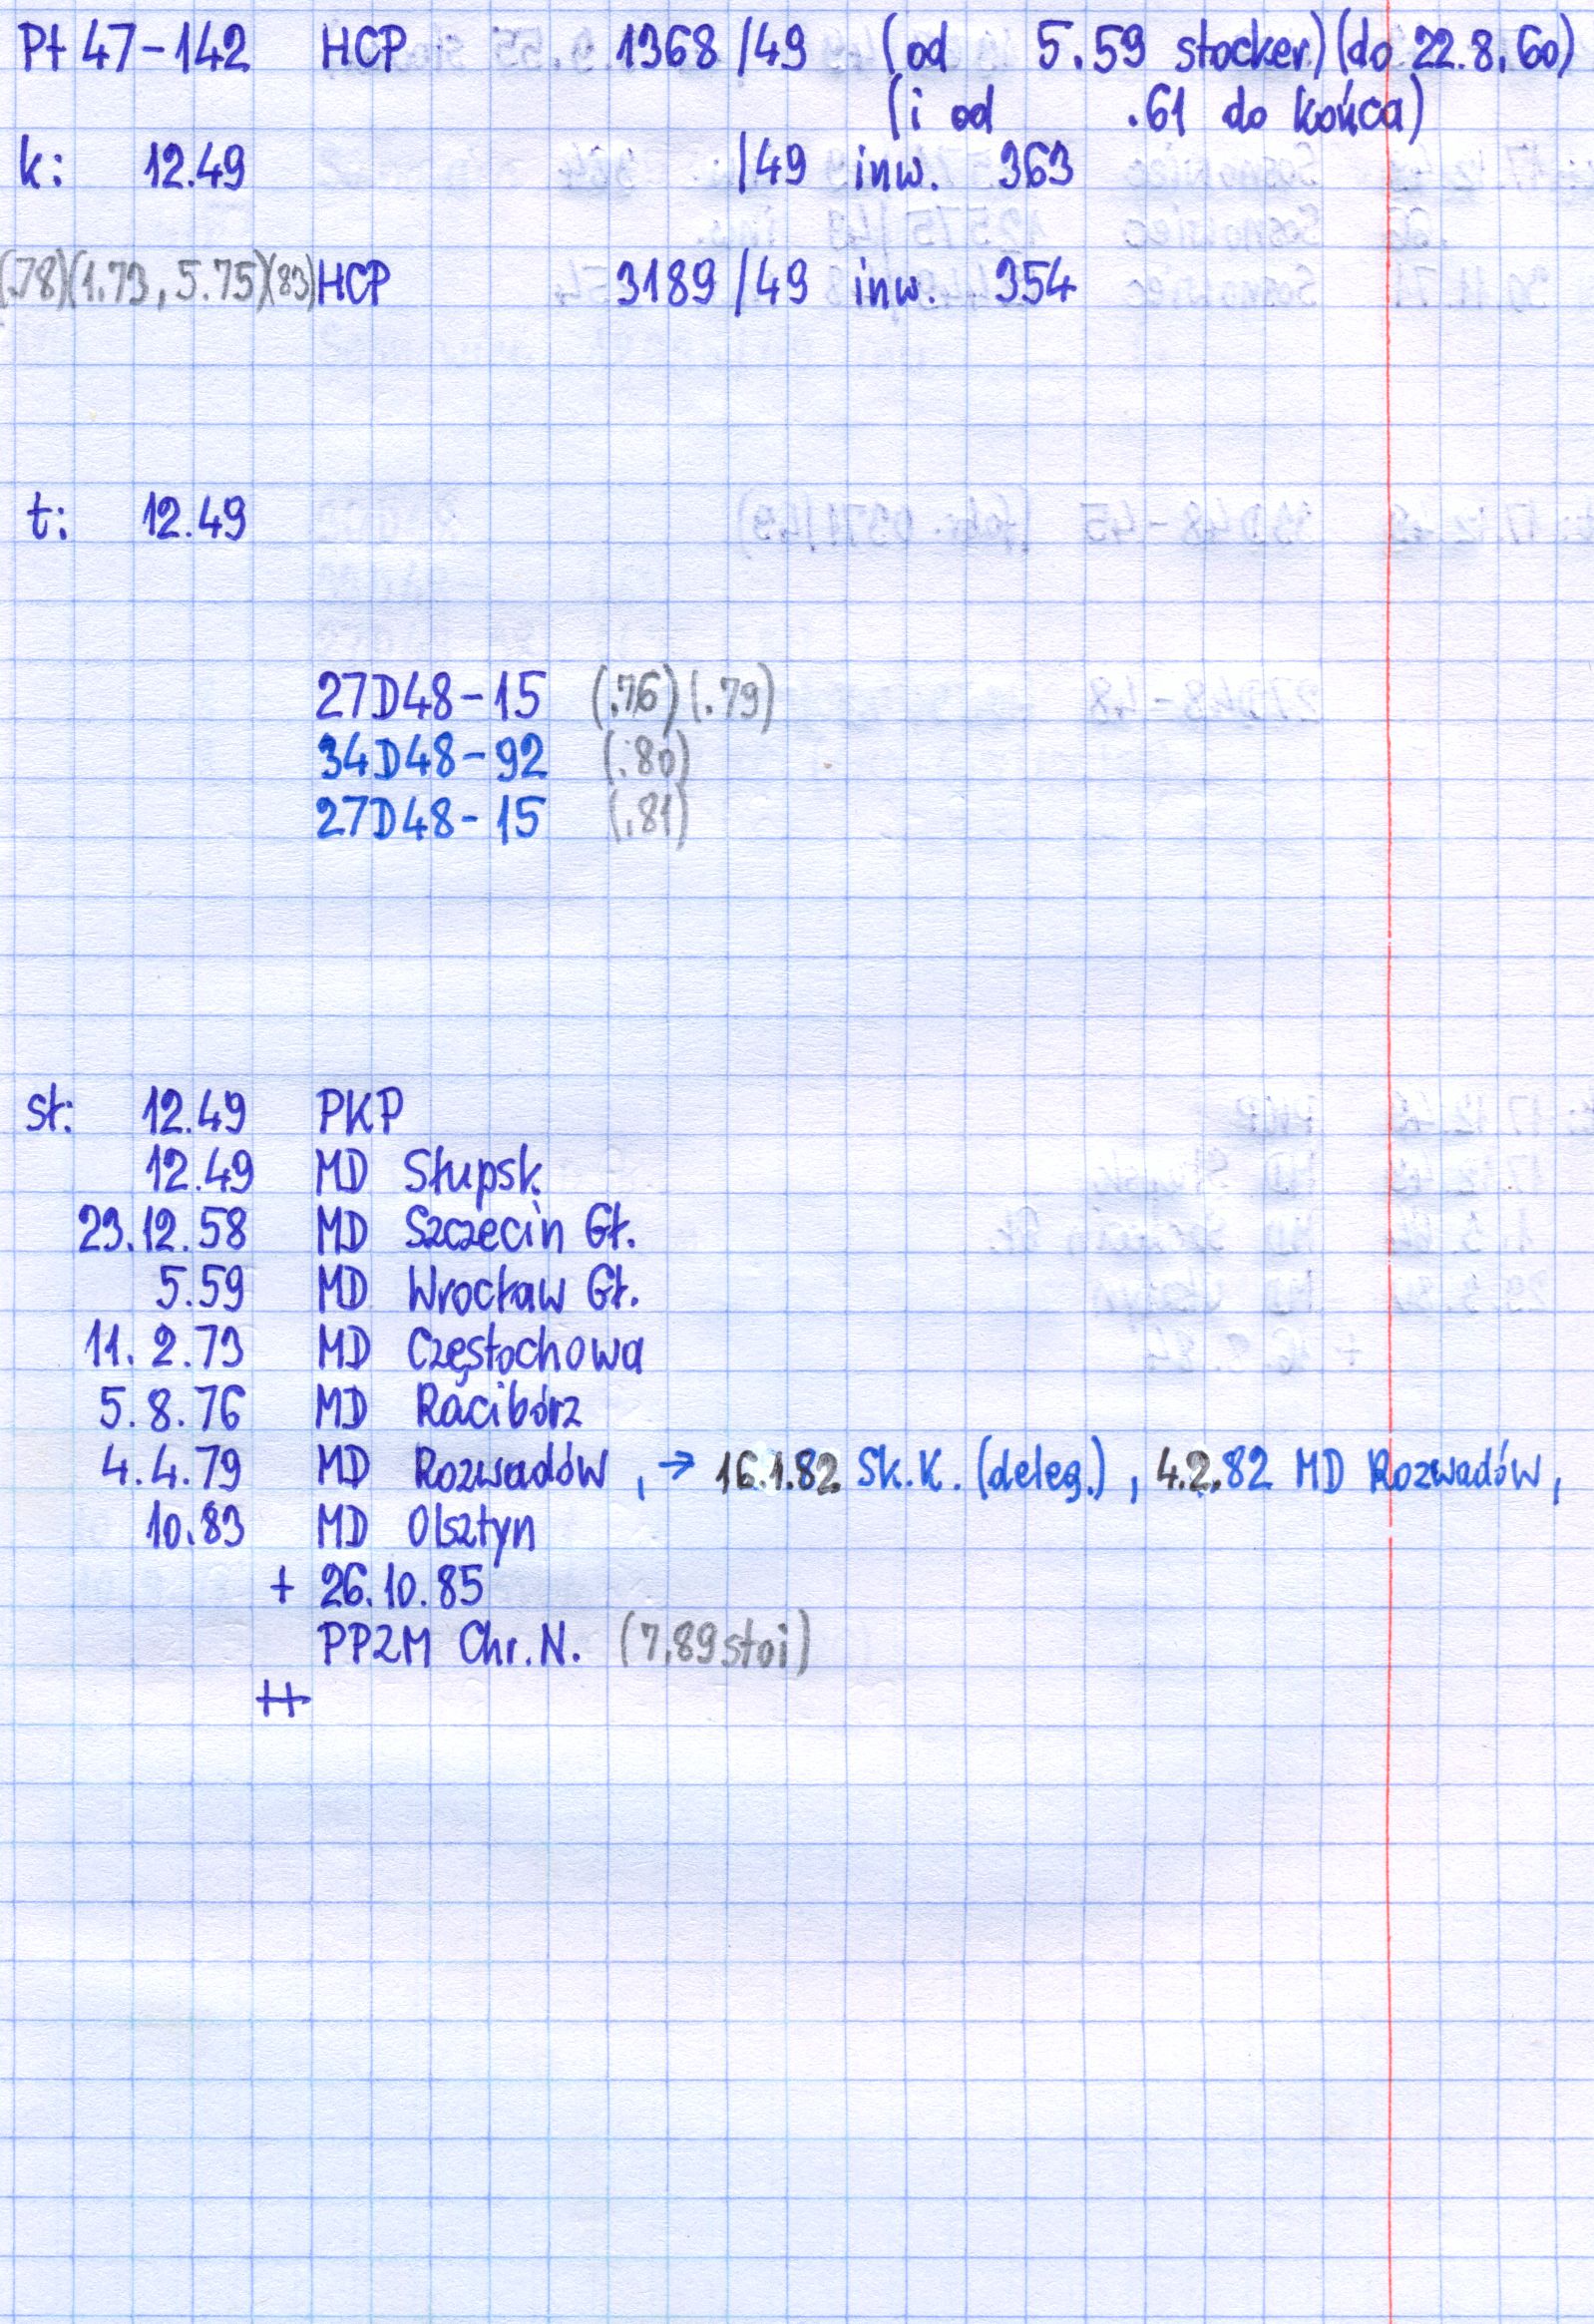 Pt 47-142 HCP 1368/49 (od 5.59 stocker.) (do 22.8.60)
(i od .61 do końca)
k: 12.49 /49 inw. 363
(.78)(1.73, 5.75)(83) HCP 3189/49 inw. 354
t: 12.49
27D48-15 (.76) (.79)
34D48-92 (.80)
27D48-15 (.81)
st: 12.49 PKP
12.49 MD Słupsk
23.12.58 MD Szczecin Gł.
5.59 MD Wrocław Gł.
11.2.73 MD Częstochowa
5.8.76 MD Racibórz
4.4.79 MD Rozwadów, → 16.1.82 Sk.K. (deleg.), 4.2.82 MD Rozwadów,
10.83 MD Olsztyn
+ 26.10.85
PPZM Chr.N. (7.89 stoi)
++